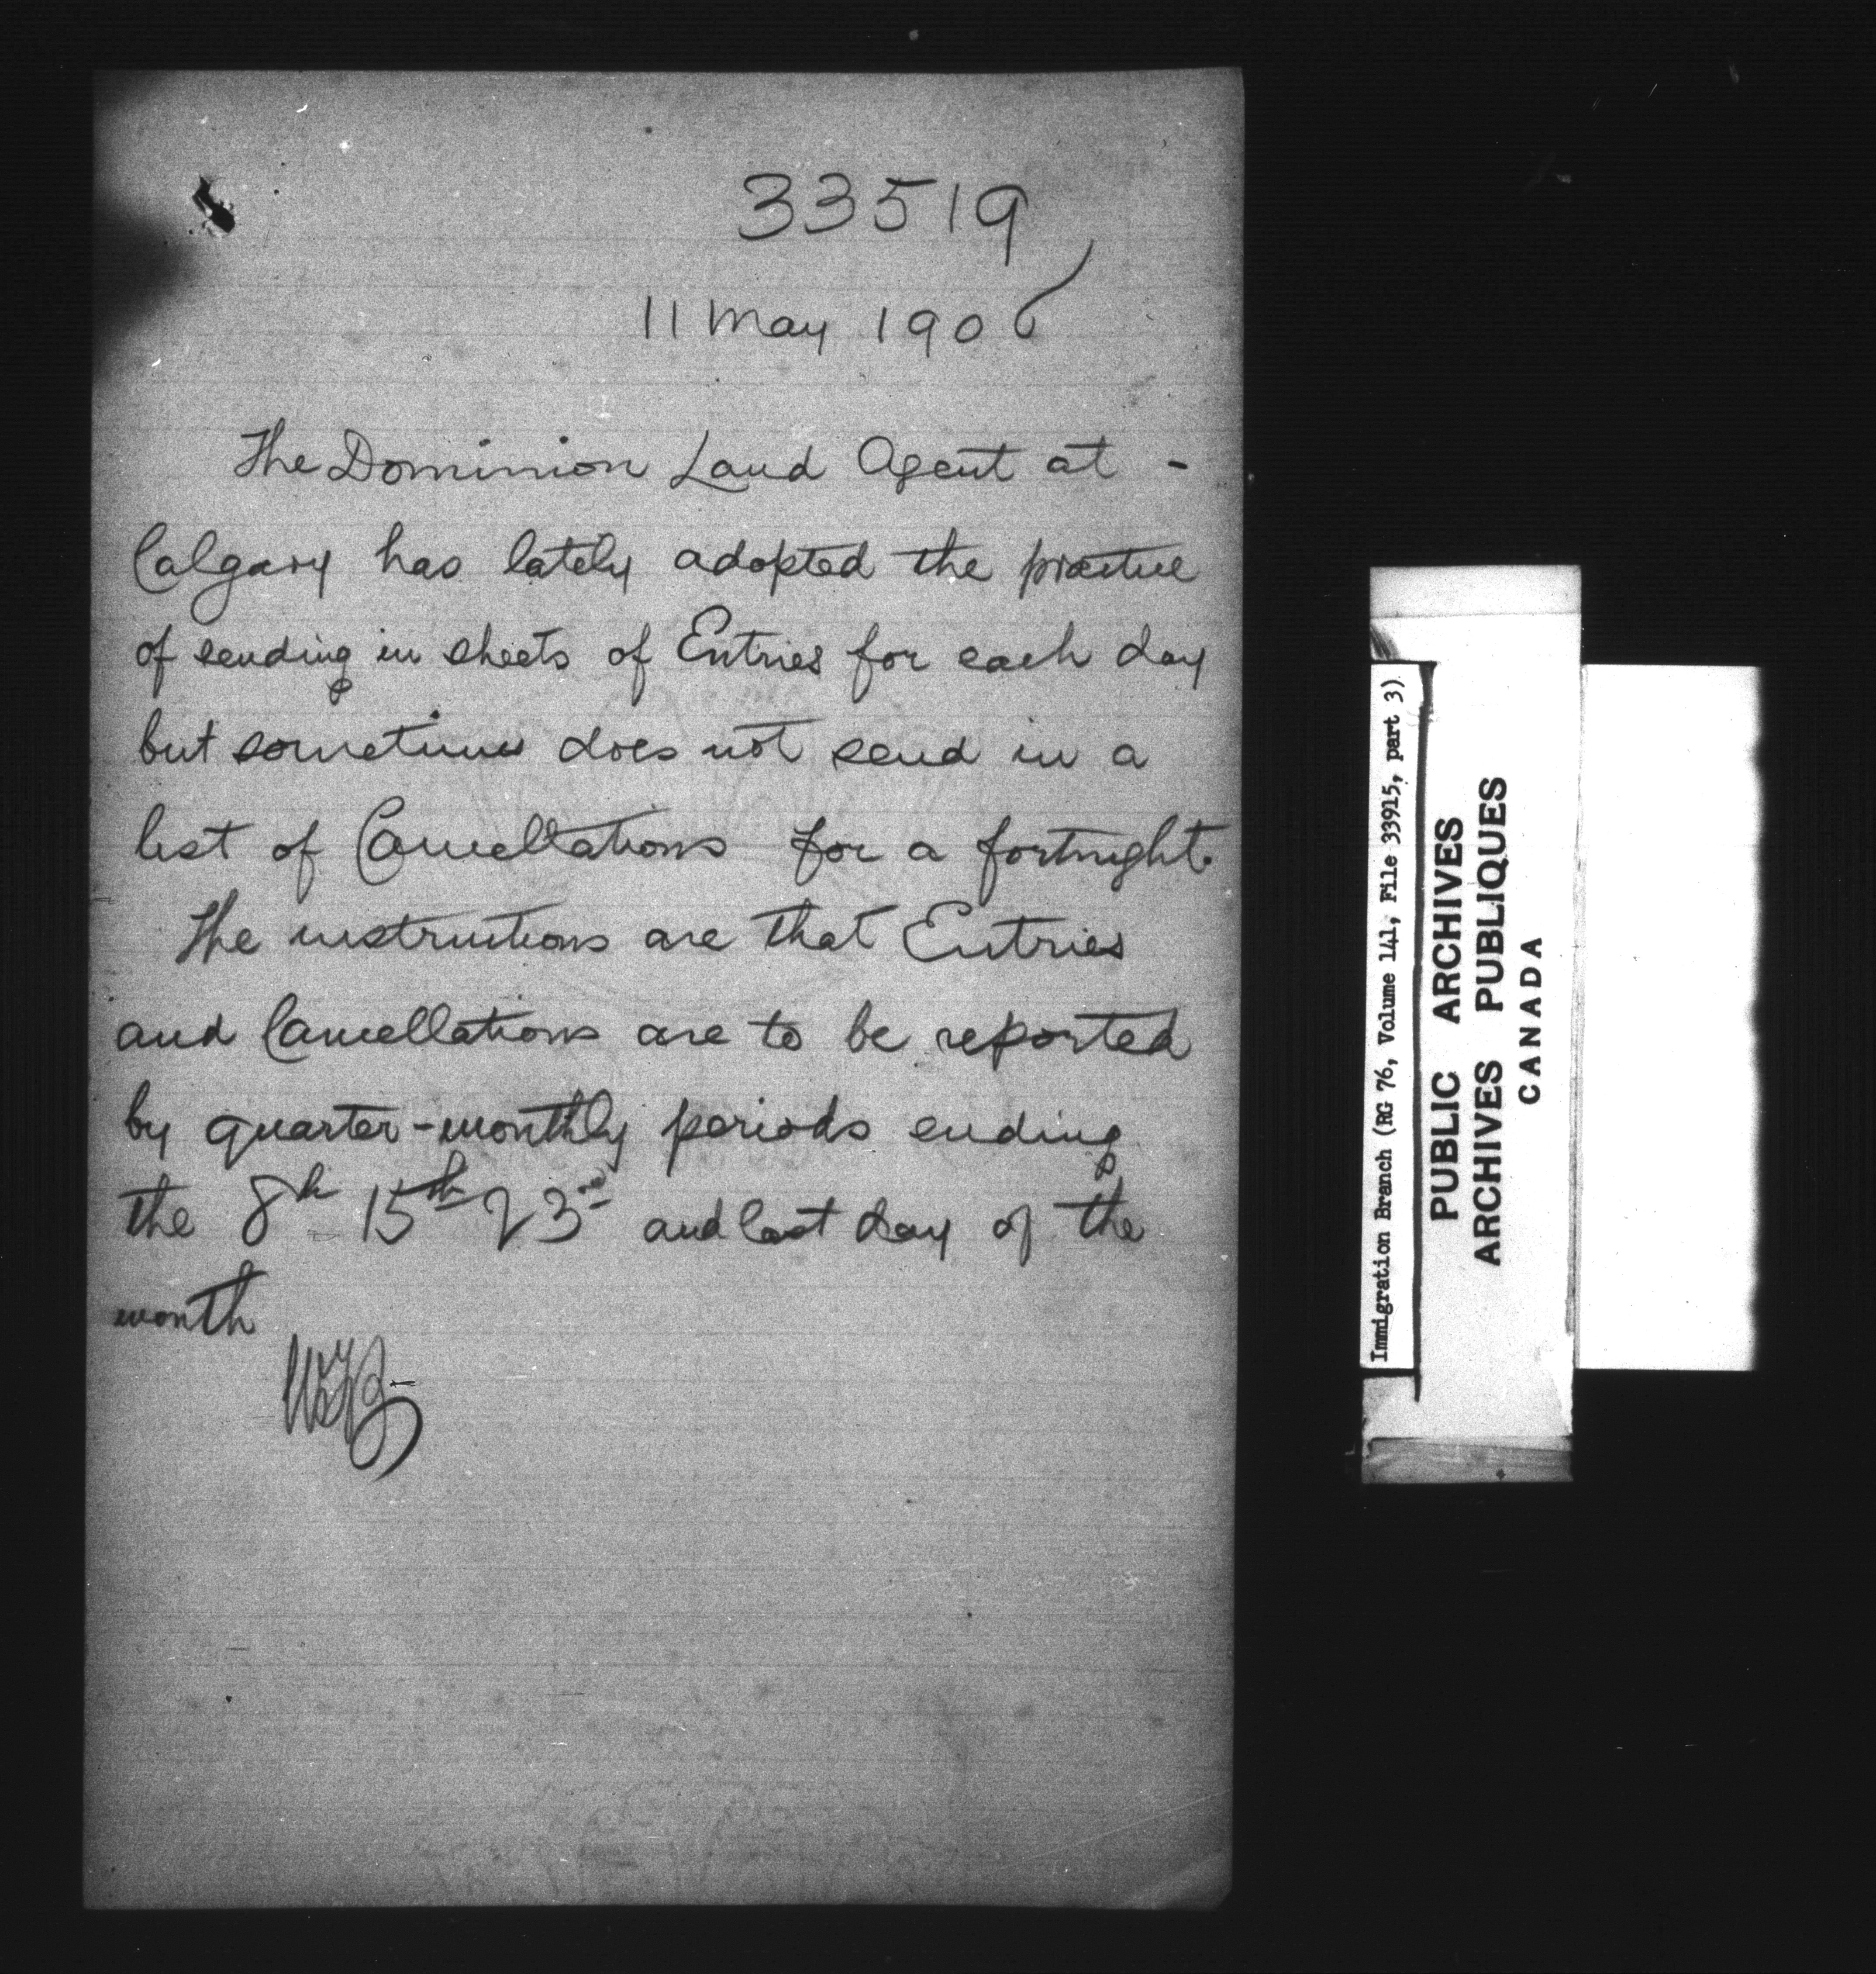 33519
11 May 1906
The Dominion Land Agent at -
Calgary has lately adopted the practice
of sending in sheets of Entries for each day
but sometimes does not send in a
list of Cancellations for a fortnight.
The instructions are that Entries
and Cancellations are to be reported
by quarter-monthly periods ending
the 8th 15th 23rd and last day of the
month
Immigration Branch (RG 76, Volume 141, File 33915, part 3)
PUBLIC ARCHIVES
ARCHIVES PUBLIQUES
CANADA